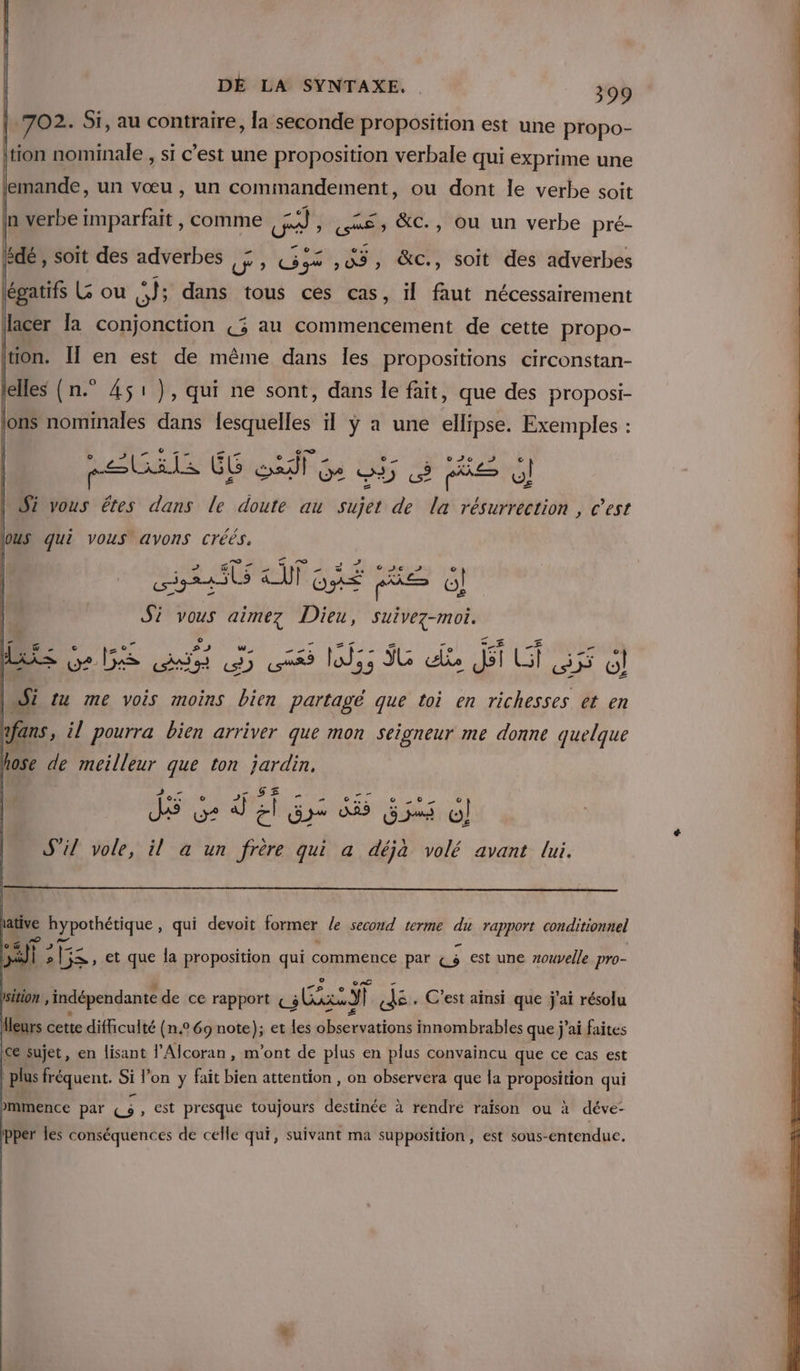 DE LA SYNTAXE. 399
702. Si, au contraire, la seconde proposition est une propo-
tion nominale, si c'est une proposition verbale qui exprime une
emande, un vœu, un commandement, ou dont le verbe soit
n verbe imparfait, comme لَيْسَ, عَسَى, &c., ou un verbe pré-
édé, soit des adverbes سَ, سَوْفَ, قَدْ, &c., soit des adverbes
égatifs مَا ou لَنْ; dans tous ces cas, il faut nécessairement
lacer la conjonction فَ au commencement de cette propo-
tion. Il en est de même dans les propositions circonstan-
elles (n.° 451), qui ne sont, dans le fait, que des proposi-
ons nominales dans lesquelles il y a une ellipse. Exemples :
إِنْ كُنْتُمْ فِى رَيْبٍ مِنَ ٱلْبَعْثِ فَإِنَّا خَلَقْنَاكُمْ
Si vous êtes dans le doute au sujet de la résurrection, c'est
ous qui vous avons créés.
إِنْ كُنْتُمْ تُحِبُّونَ ٱللّٰهَ فَٱتَّبِعُونِى
Si vous aimez Dieu, suivez-moi.
إِنْ تَرَنِ أَنَا أَقَلَّ مِنْكَ مَالًا وَوَلَدًا فَعَسَى رَبِّى يُؤْتِيَنِى خَيْرًا مِنْ جَنَّتِكَ
Si tu me vois moins bien partagé que toi en richesses et en
nfans, il pourra bien arriver que mon seigneur me donne quelque
hose de meilleur que ton jardin.
إِنْ يَسْرِقْ فَقَدْ سَرَقَ أَخٌ لَهُ مِنْ قَبْلُ
S'il vole, il a un frère qui a déjà volé avant lui.
native hypothétique, qui devoit former le second terme du rapport conditionnel
جَزَاءُ ٱلشَّرْطِ, et que la proposition qui commence par فَ est une nouvelle pro-
osition, indépendante de ce rapport عَلَى ٱلْٱسْتِئْنَافِ. C'est ainsi que j'ai résolu
lleurs cette difficulté (n.° 69 note); et les observations innombrables que j'ai faites
ce sujet, en lisant l'Alcoran, m'ont de plus en plus convaincu que ce cas est
plus fréquent. Si l'on y fait bien attention, on observera que la proposition qui
ommence par فَ, est presque toujours destinée à rendre raison ou à déve-
pper les conséquences de celle qui, suivant ma supposition, est sous-entendue.